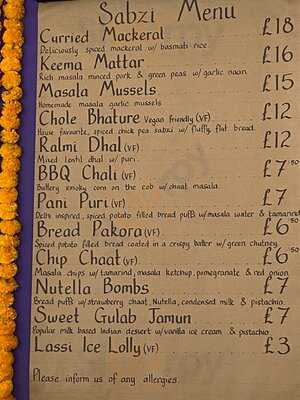 Sabzi Menu
Curried Mackeral £18
Deliciously spiced mackerel w/ basmati rice.
Keema Mattar £16
Rich masala minced pork & green peas w/ garlic naan.
Masala Mussels £15
Homemade masala garlic mussels
Chole Bhature Vegan friendly (VF) £12
House favourite, spiced chick pea sabzi w/ fluffy flat bread.
Ralmi Dhal (VF) £12
Mixed lentil dhal w/ puri.
BBQ Chali (VF) £7.50
Buttery smoky corn on the cob w/ chaat masala.
Pani Puri (VF) £7
Delhi inspired, spiced potato filled bread puffs w/ masala water & tamarind
Bread Pakora (VF) £6.50
Spiced potato filled bread coated in a crispy batter w/ green chutney
Chip Chaat (VF) £6.50
Masala chips w/ tamarind, masala ketchup, pomegranate & red onion
Nutella Bombs £7
Bread puffs w/ strawberry chaat, Nutella, condensed milk & pistachio
Sweet Gulab Jamun £7
Popular milk based Indian dessert w/ vanilla ice cream & pistachio
Lassi Ice Lolly (VF) £3
Please inform us of any allergies.